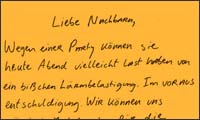 Liebe Nachbarn,
Wegen einer Party können sie
heute Abend vielleicht Last haben von
ein bißchen Lärmbelästigung. Im voraus
entschuldigung. Wir können uns
für die